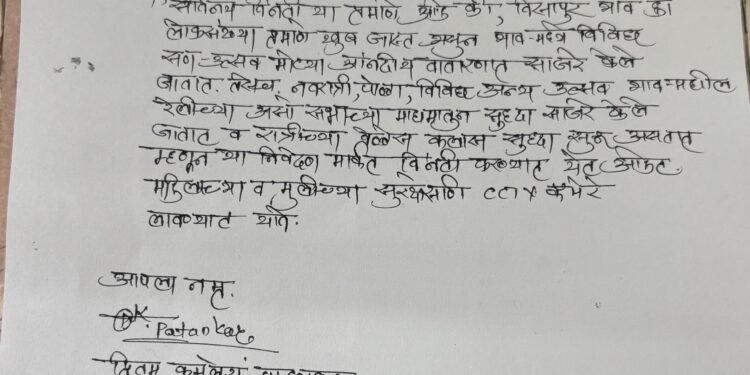 सविनय विनंती या प्रमाणे आहे की, विसापुर गाव का
लोकसंख्या प्रमाणे खुब जास्त असुन गाव-मध्ये विविध
सण-उत्सव मोठ्या आनंदीय वातारणात साजरे केले
जातात. तसेच, नवरात्री, पोळा, विविध अन्य उत्सव गाव-मधील
रॅलीच्या असो सभाच्या माध्यमातुन सुध्दा साजरे केले
जातात व रात्रीच्या वेळेस क्लास सुध्दा सुरू असतात
म्हणुन या निवेदन मार्फत विनंती करण्यात येत आहेत,
महिलांच्या व मुलींच्या सुरक्षेसाठी CCTV कॅमेरे
लावण्यात यावे.
आपला नम्र.
K. Patankar